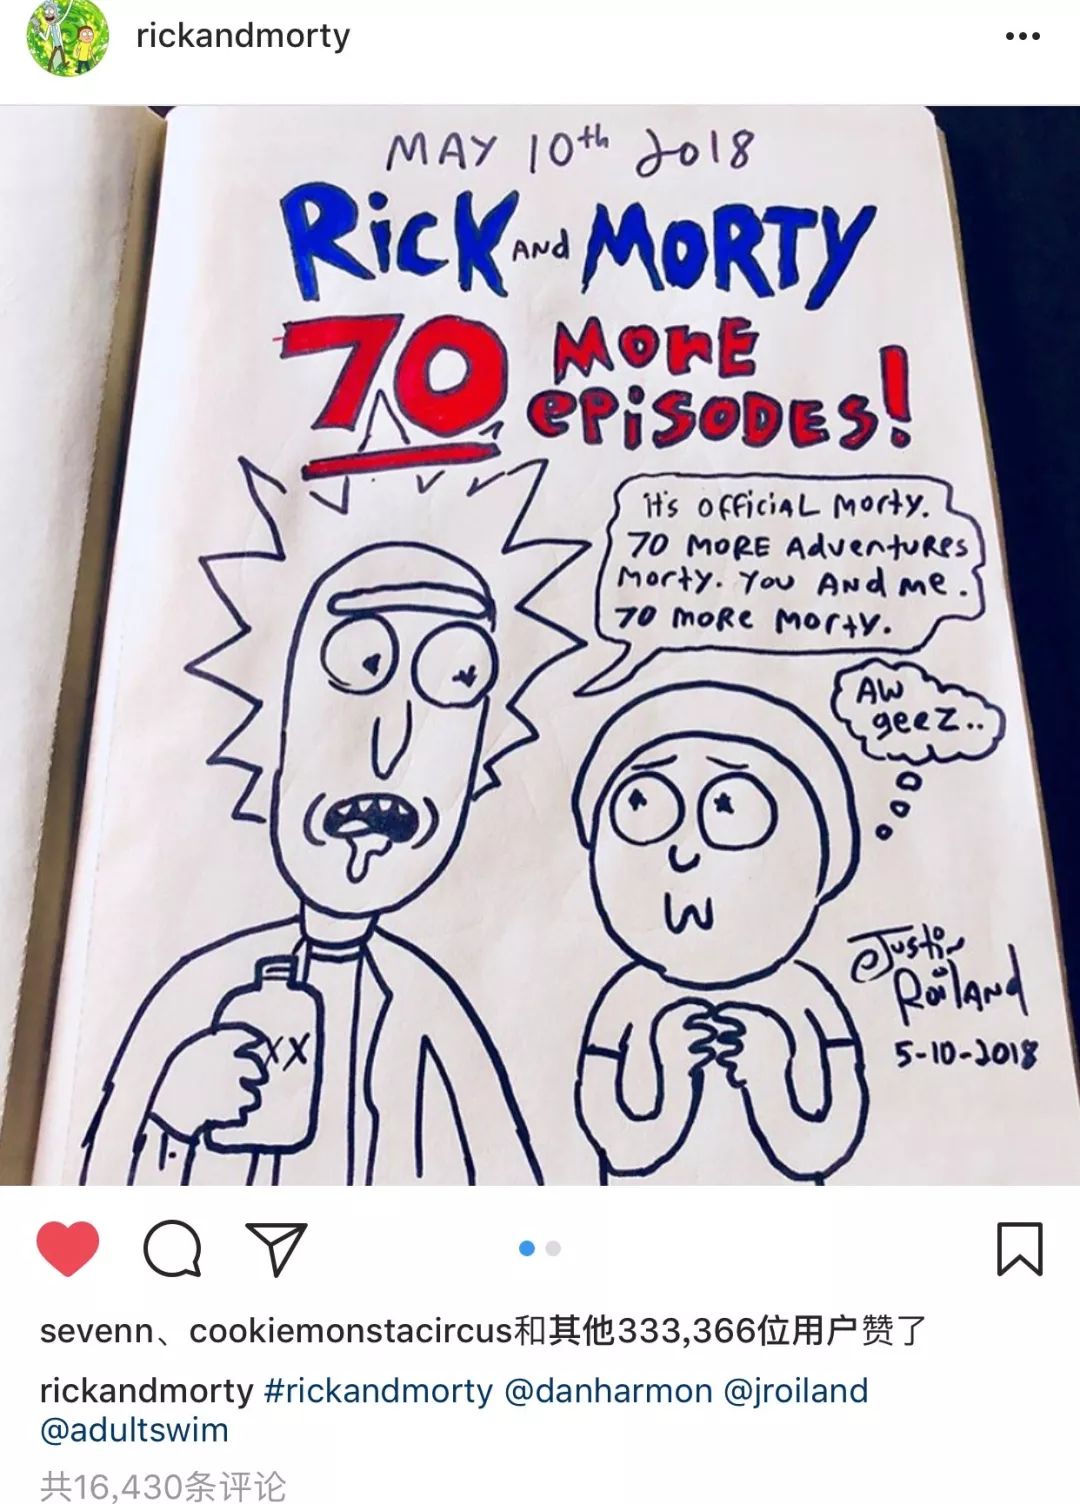 rickandmorty
MAY 10th 2018
RicK AND MORTY
70 MORE
EPiSODES!
it's official Morty.
70 MORE Adventures
Morty. You And me.
70 more Morty.
AW
geez..
Justin
Roiland
5-10-2018
XX
sevenn、cookiemonstacircus和其他333,366位用户赞了
rickandmorty #rickandmorty @danharmon @jroiland
@adultswim
共16,430条评论